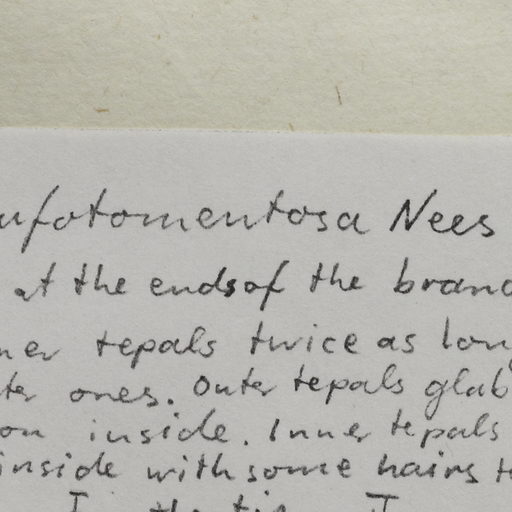 ufotomentosa Nees
at the ends of the branc
ner tepals twice as long
ter ones. Outer tepals glab
on inside. Inner tepals
inside with some hairs to